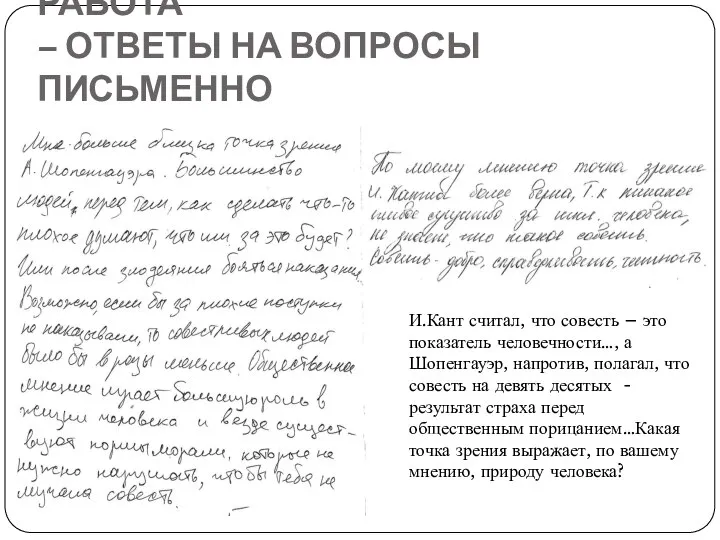 РАБОТА
– ОТВЕТЫ НА ВОПРОСЫ
ПИСЬМЕННО
Мне больше близка точка зрения
А. Шопенгауэра. Большинство
людей, перед тем, как сделать что-то
плохое думают, что им за это будет?
Или после злодеяния бояться наказания.
Возможно, если бы за плохие поступки
не наказывали, то совестливых людей
было бы в разы меньше. Общественное
мнение играет большую роль в
жизни человека и везде сущест-
вуют нормы морали, которые не
нужно нарушать, чтобы тебя не
мучала совесть.
По моему мнению точка зрения
И. Канта более верна, т.к никакое
живое существо за искл. человека,
не знает, что такое совесть.
Совесть - добро, справедливость, честность.
И.Кант считал, что совесть – это
показатель человечности…, а
Шопенгауэр, напротив, полагал, что
совесть на девять десятых -
результат страха перед
общественным порицанием…Какая
точка зрения выражает, по вашему
мнению, природу человека?